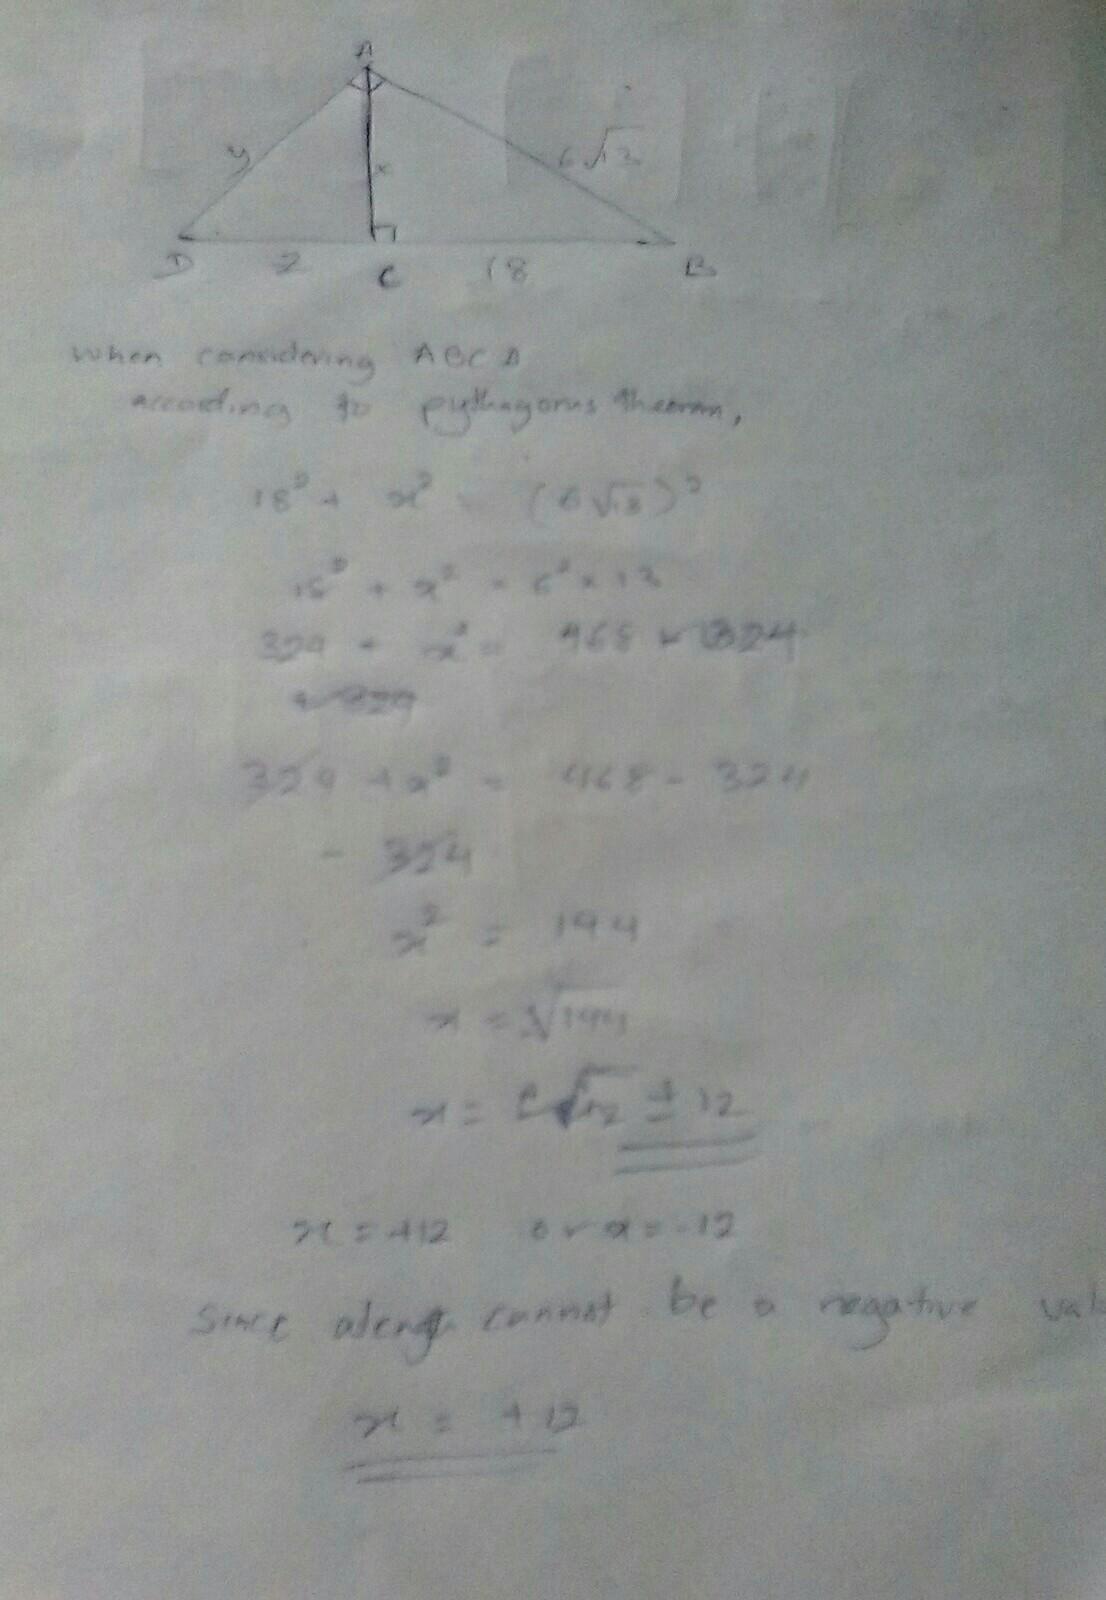 A
y
x
6√13
D
z
C
18
B
when considering ABC Δ
according to pythagorus theorem,
18² + x² = (6√13)²
18² + x² = 6² × 13
324 + x² = 468
324 + x² = 468 - 324
- 324
x² = 144
x = √144
x = ± 12
x = +12 or x = -12
Since a length cannot be a negative val
x = +12